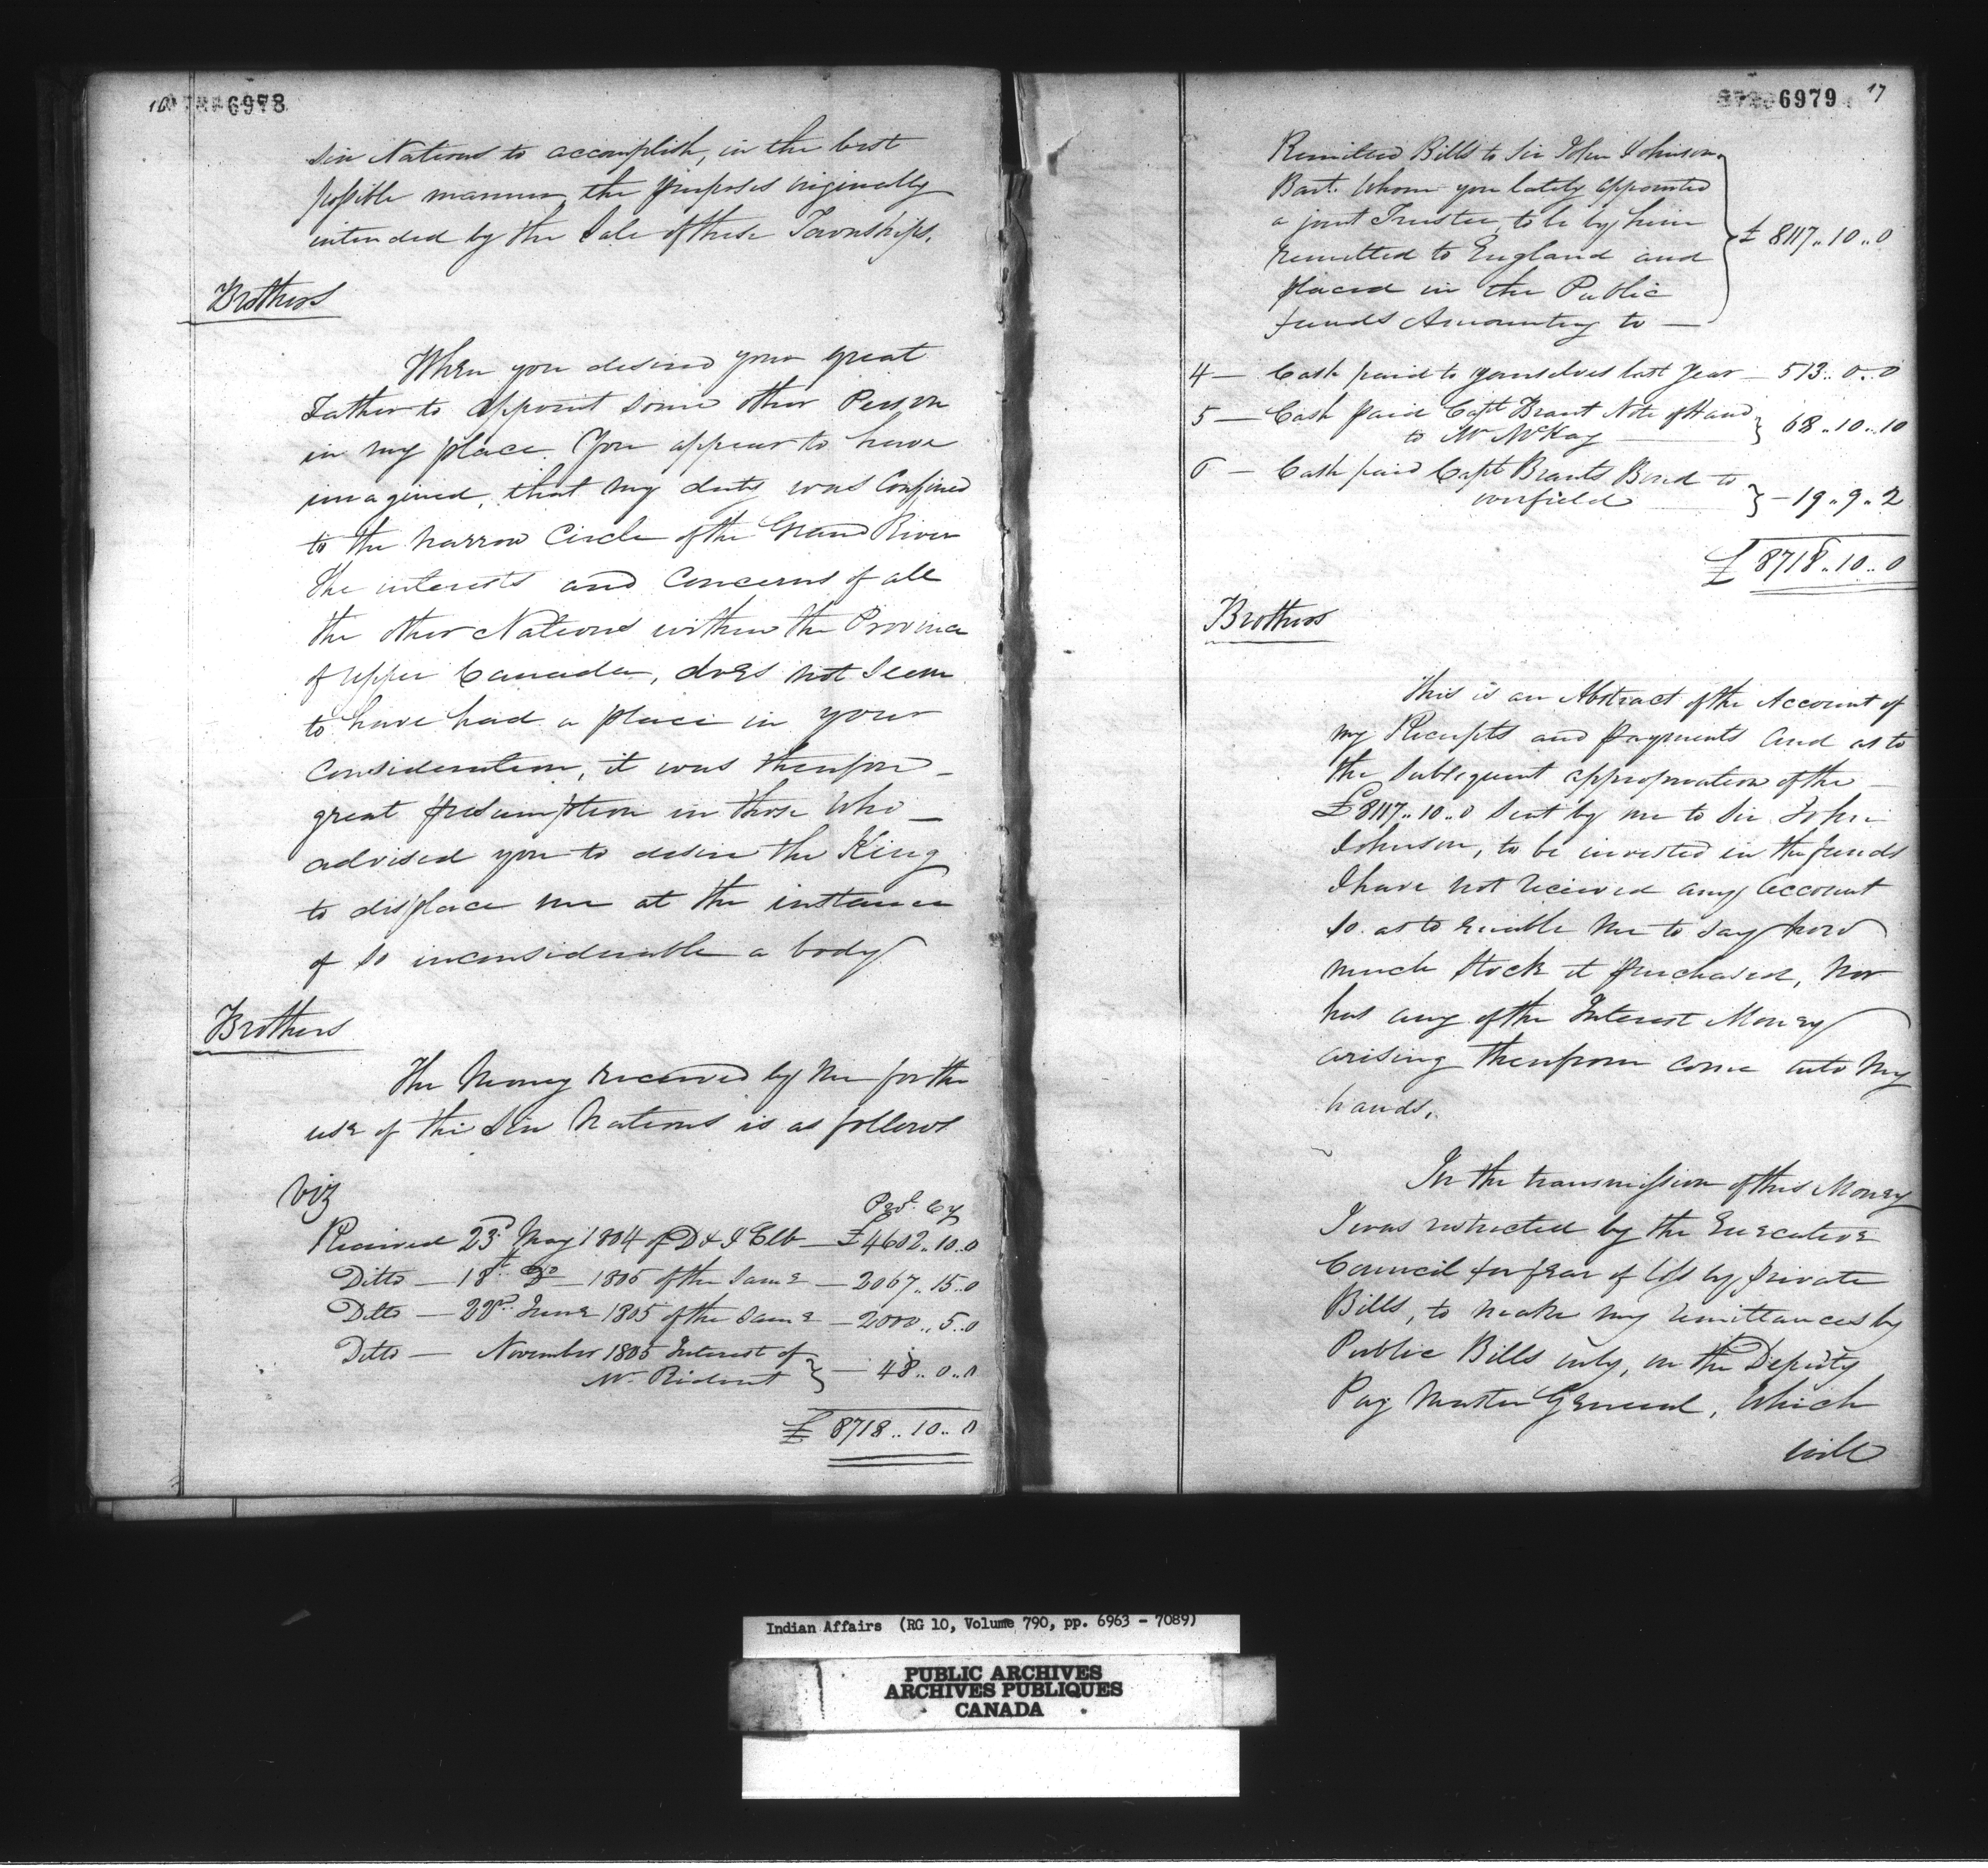 16 6978
Six Nations to accomplish, in the best
possible manner the purposes originally
intended by the Sale of these Townships.
Brothers
When you desired your great
Father to appoint some other Person
in my place. You appear to have
imagined, that my duty was Confined
to the narrow Circle of the Grand River
the interests and Concerns of all
the other Nations within the Province
of Upper Canada, does not Seem
to have had a place in your
Consideration, it was therefore
great presumption in those Who
advised you to desire the King
to displace me at the instance
of so inconsiderable a body
Brothers
The Money received by me for the
use of the Six Nations is as follows
viz
Prov. Cy
Received 23d May 1804 of D & J Erb — £4602..10..0
Ditto — 18th Do — 1805 of the Same — 2067..15..0
Ditto — 22d June 1805 of the Same — 2000..5..0
Ditto — November 1805 Interest of
Mr Ridout } — 48..0..0
£ 8718..10..0
6979 17
Remitted Bills to Sir John Johnson
Bart. Whom you lately appointed
a joint Trustee, to be by him
remitted to England and
placed in the Public
funds Amounting to —
} £ 8117..10..0
4 — Cash paid to yourselves last Year — 513..0..0
5 — Cash paid Capt Brant Note of Hand
to Mr McKay } 68..10..10
6 — Cash paid Capt Brants Bond to
} — 19..9..2
£ 8718..10..0
Brothers
This is an Abstract of the Account of
my Receipts and Payments and as to
the Subsequent appropriation of the
£8117..10..0 Sent by me to Sir John
Johnson, to be invested in the funds
I have not received any account
so as to enable me to say how
much Stock it purchased, nor
has any of the Interest Money
arising therefrom come into my
hands.
In the transmission of this Money
I was restricted by the Executive
Council for fear of loss by private
Bills, to make my remittances by
Public Bills only, on the Deputy
Pay Master General, Which
will
Indian Affairs (RG 10, Volume 790, pp. 6963 - 7089)
PUBLIC ARCHIVES
ARCHIVES PUBLIQUES
CANADA